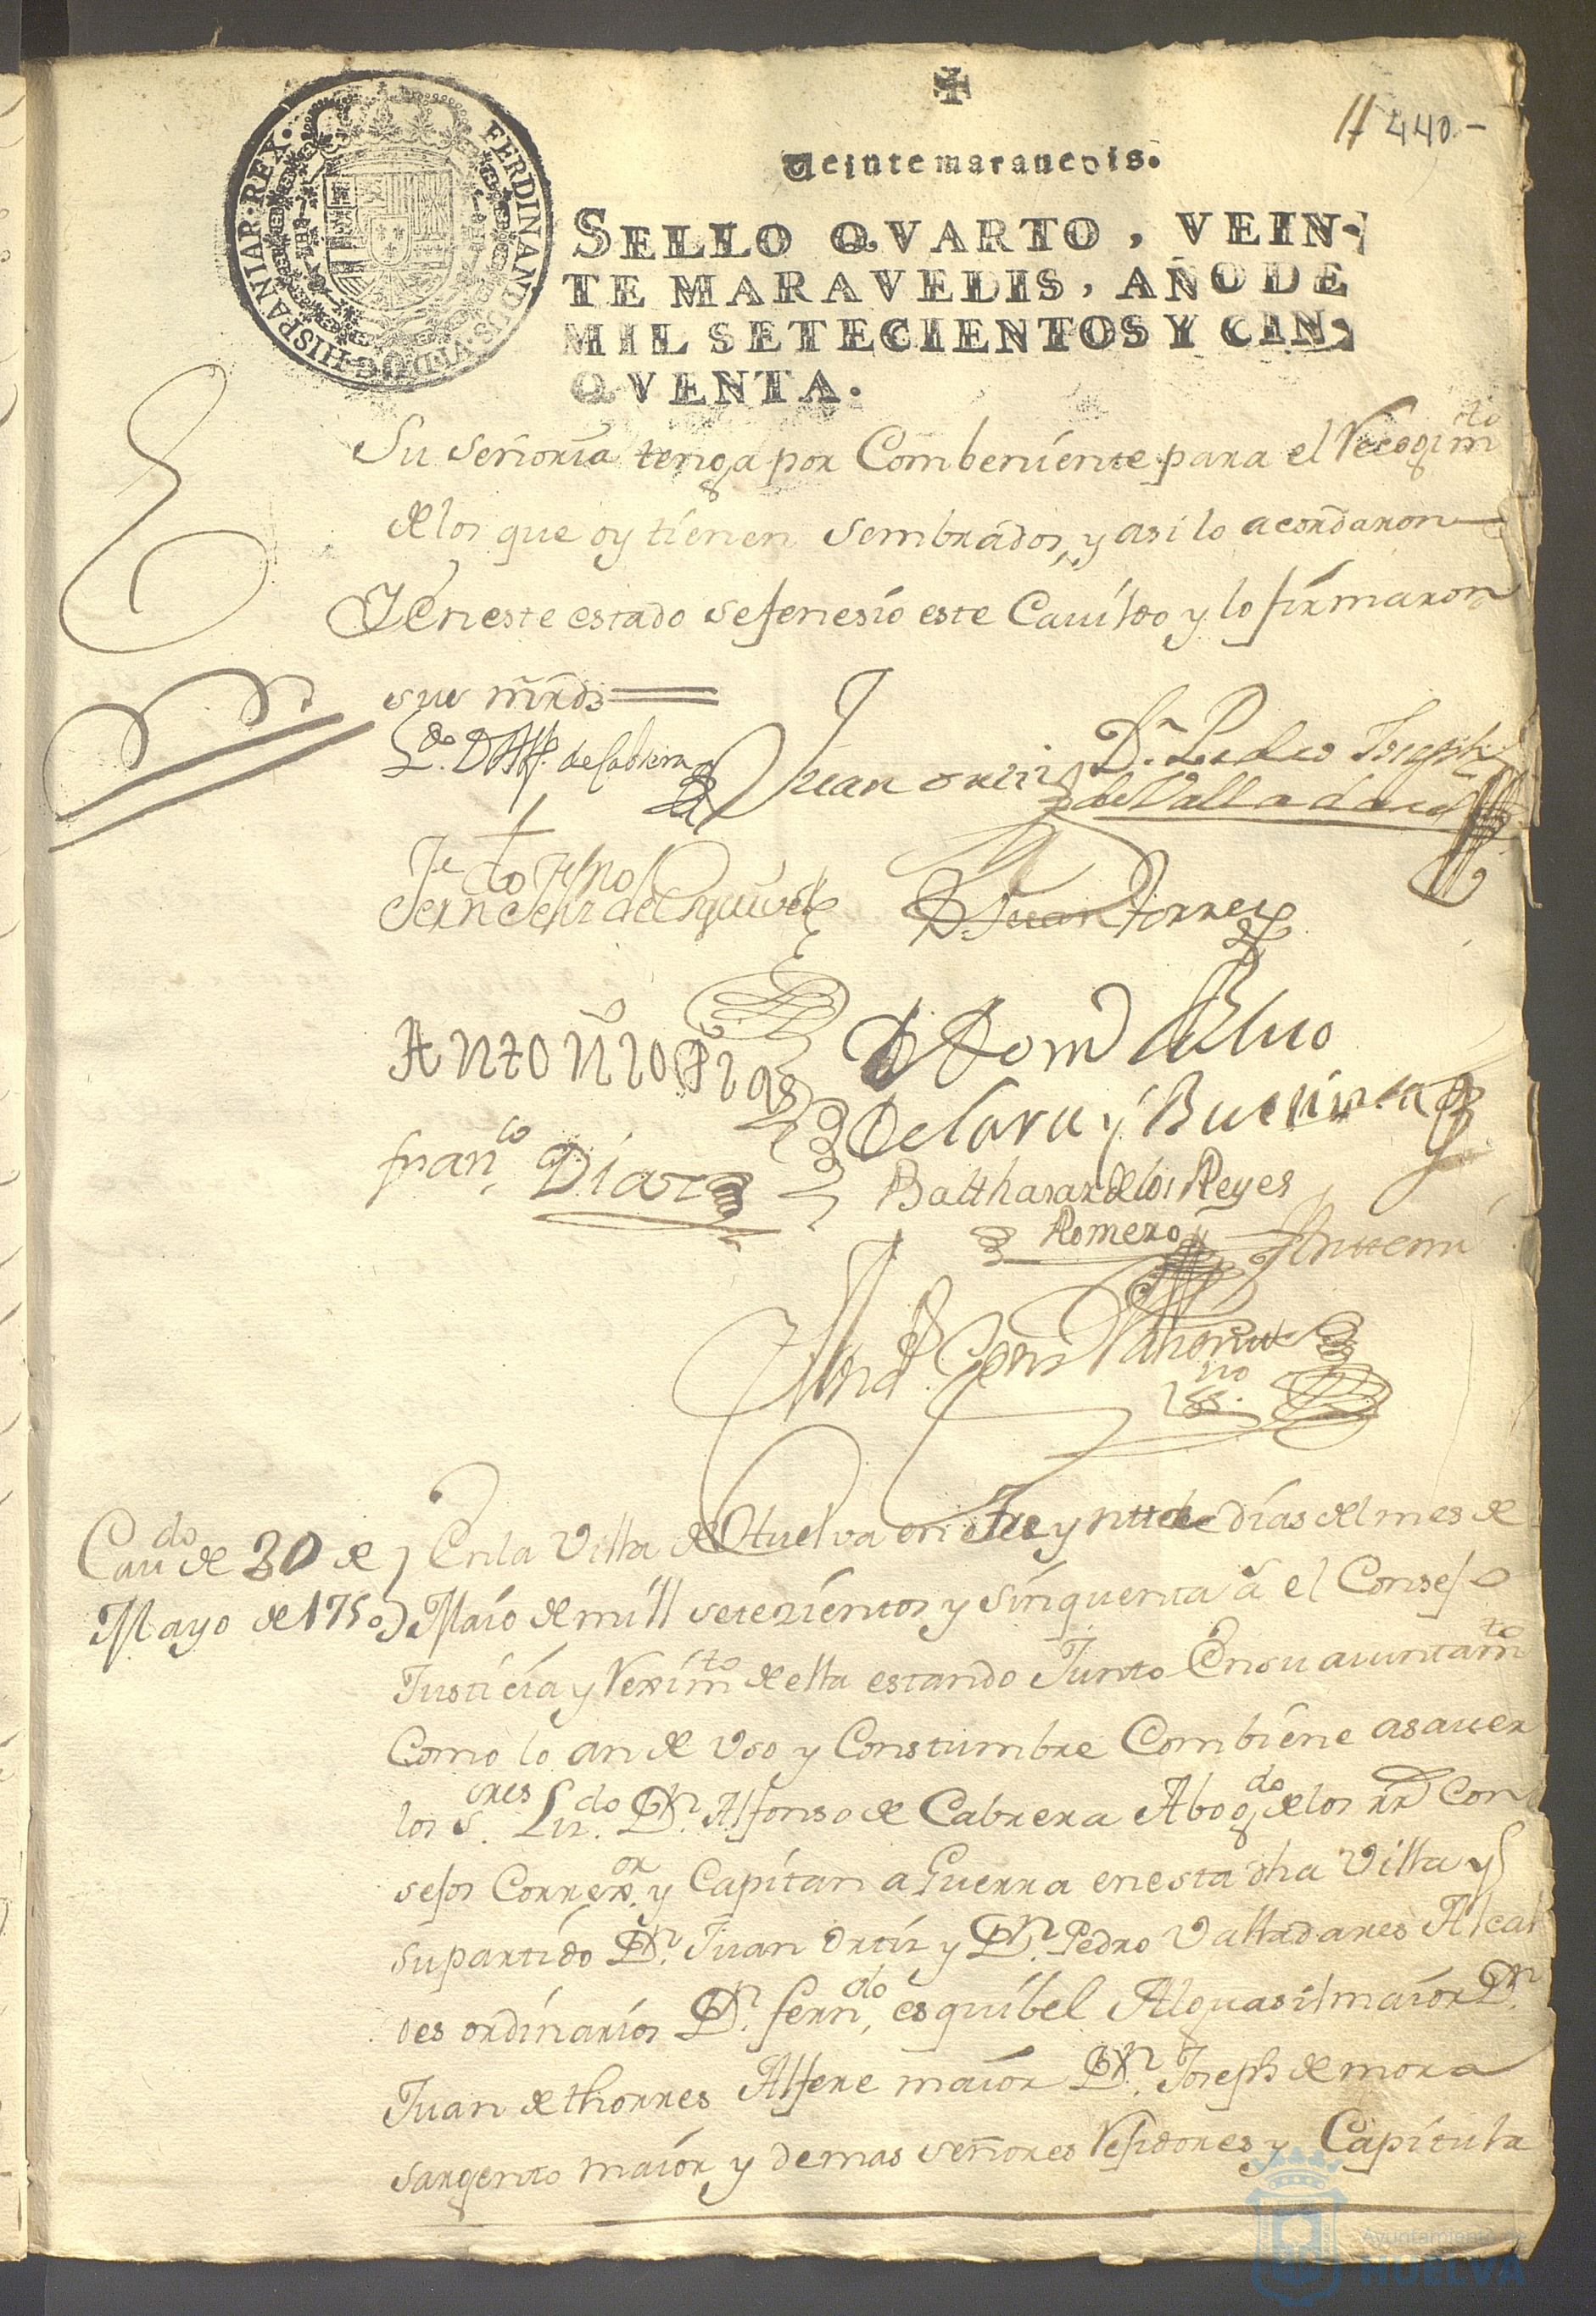 ✠
11 440-
Veinte maravedis.
SELLO QVARTO, VEIN-
TE MARAVEDIS, AÑO DE
MIL SETECIENTOS Y CIN-
QVENTA.
FERDINANDUS·VI·D·G·HISPANIAR·REX·
Su señoria tenga por Combeniente para el Recogim.to
de los que oy tienen sembrados, y asi lo acordaron
Y en este estado se fenesio este Cavildo y lo firmaron
sus mrds
L.do D. Alf. de Cabrera
Juan ortiz
D.n Pedro Joseph
de Valladares
D. Juan Torres
Antonio
D. Dom
de Lara y
fran.co Diaz
Balthasar de los Reyes
Romero
Antemi
Cav.do de 30 de
Mayo de 1750
En la Villa de Huelva en treyntta dias del mes de
Maio de mill setezientos y sinquenta a.s el Consejo
Justicia y Rexim.to de ella estando Junto En su aiuntam.to
Como lo an de Vso y Constumbre Combiene asaver
los S.ores Liz.do D.n Alfonso de Cabrera Abog.do de los rr.s Con
sejos Correx.or y Capitan a Guerra en esta dha Villa y
su partido D.n Juan Ortiz y D.n Pedro Valladares Alcal
des ordinarios D.n fern.do esquibel Alguasil maior D.n
Juan de thorres Alfere maior D.n Joseph de mora
sargento maior y demas señores Rejidores y Capitula
Ayuntamiento de
HUELVA